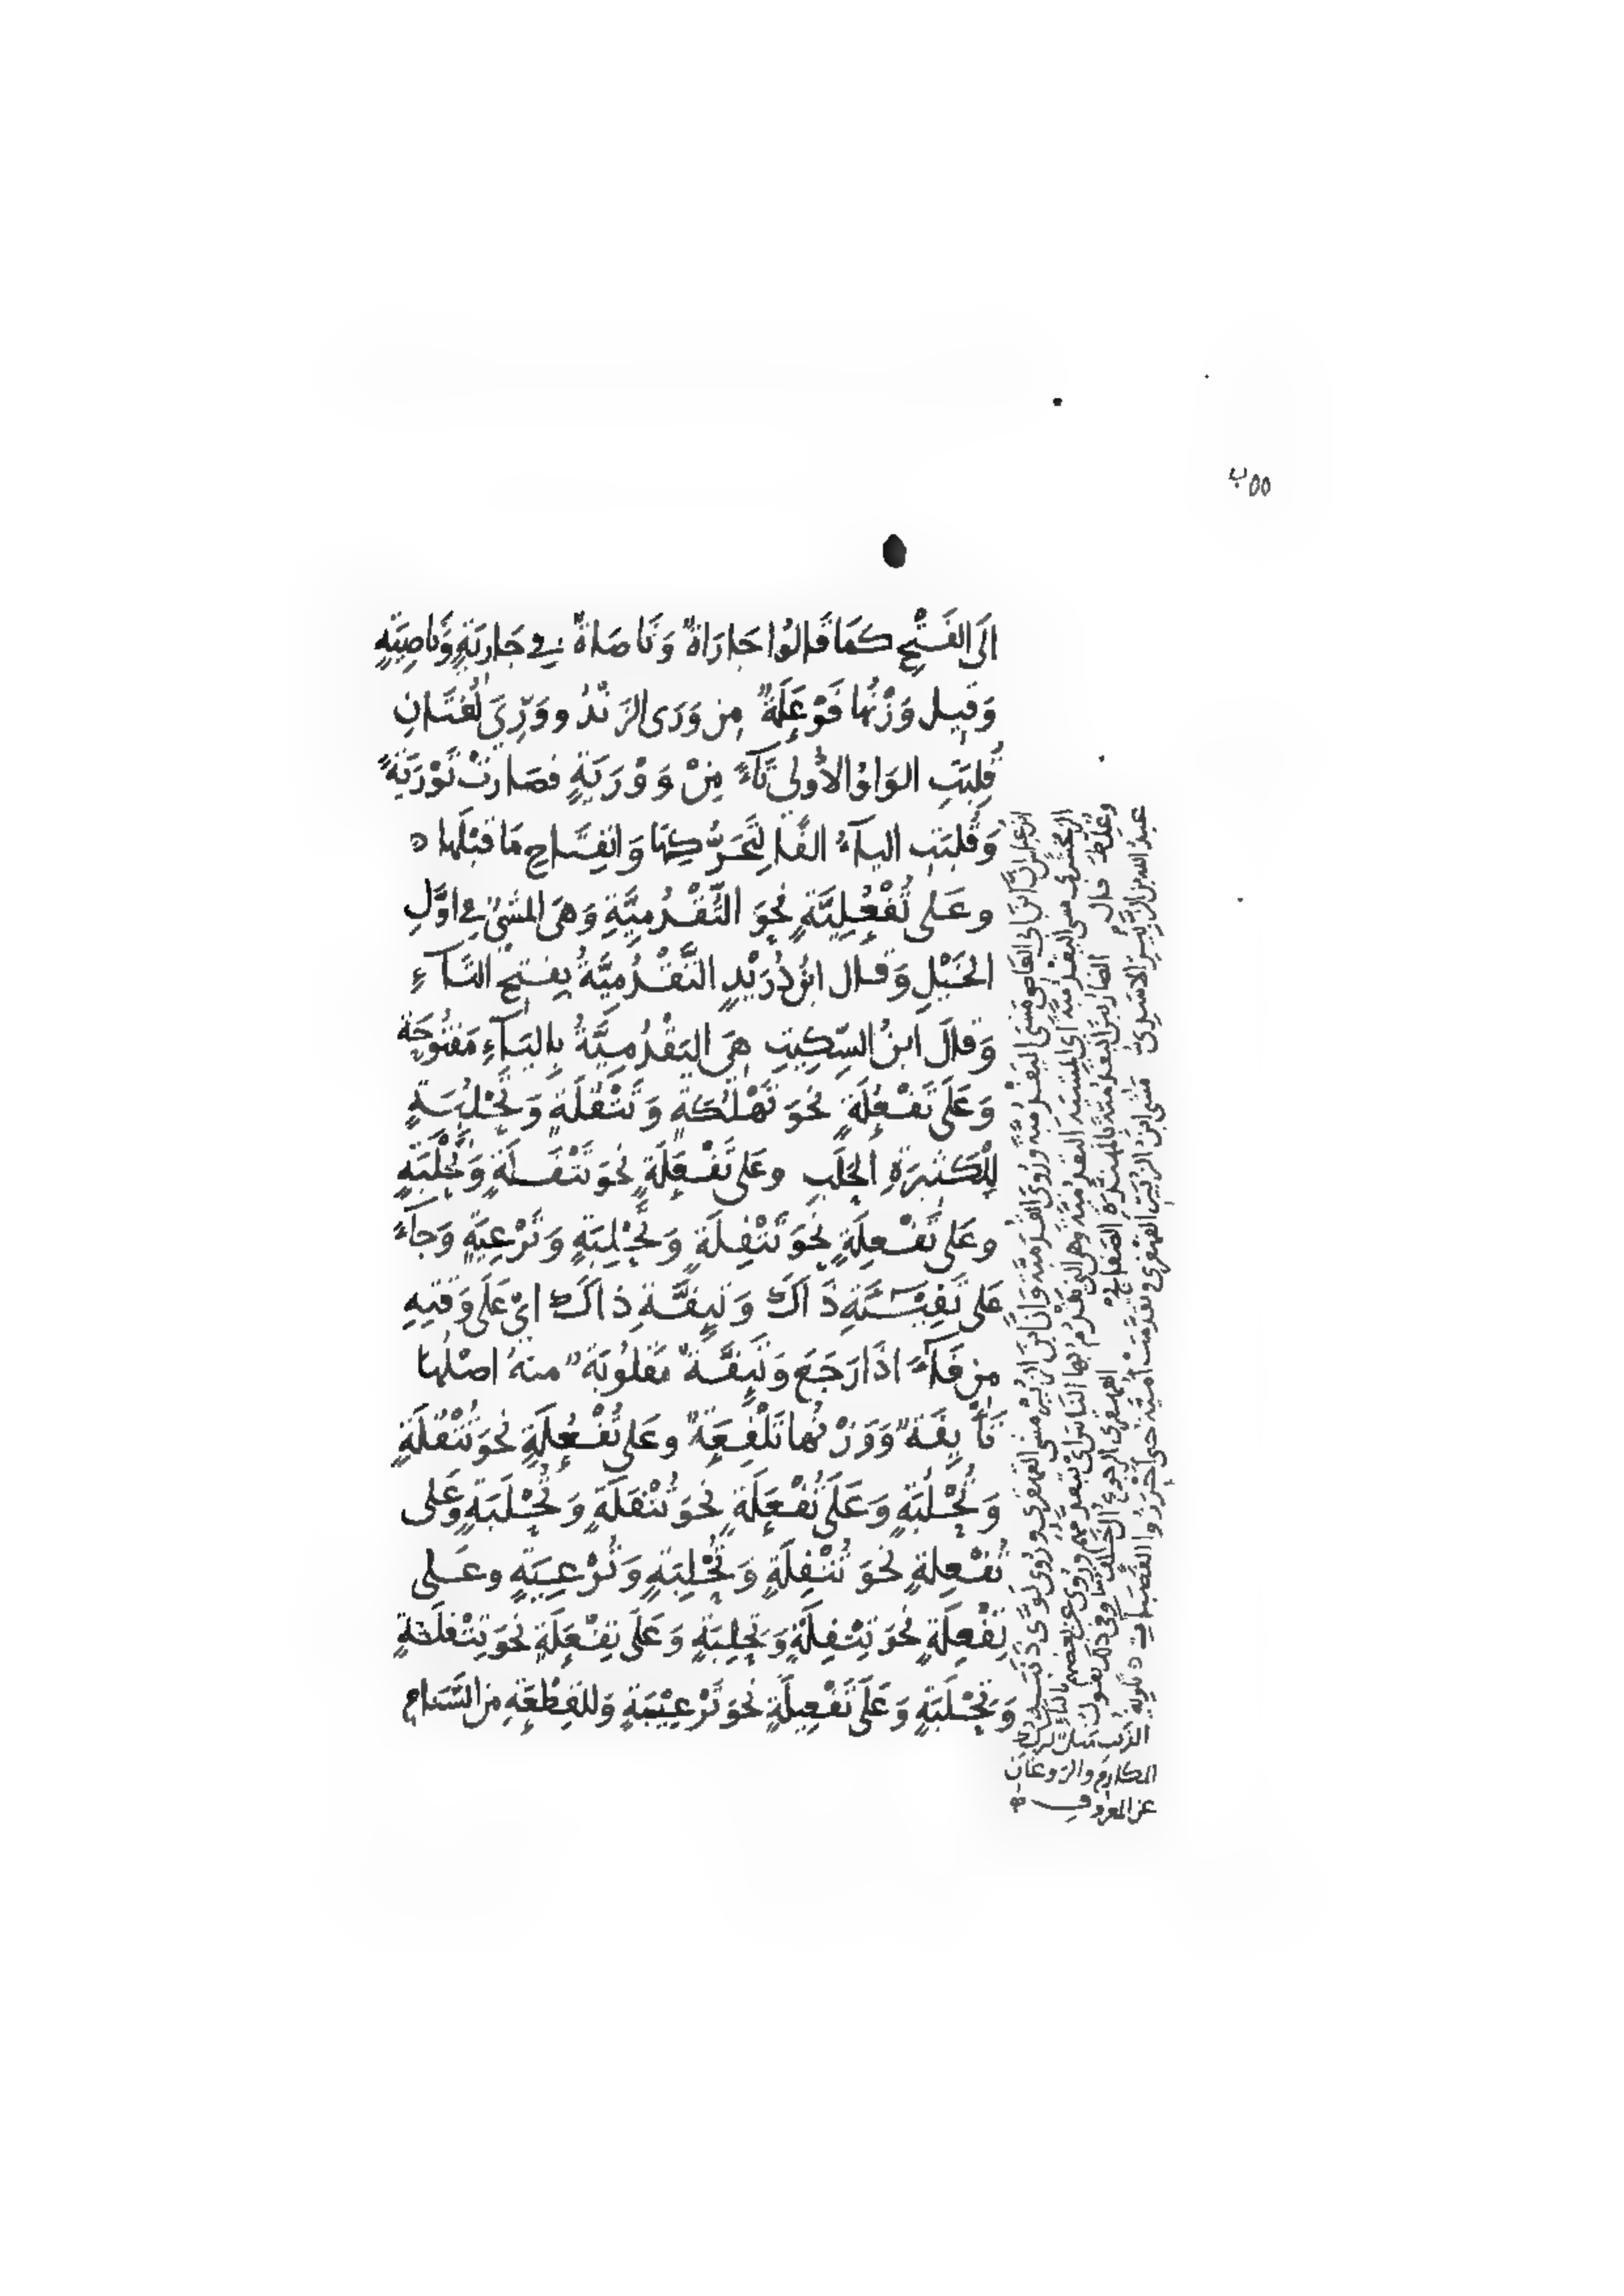 ٥٥ب
الَى الفَتْحِ كَمَا قَالُوا جَارَاةٌ وَنَاصَاةٌ فِي جَارِيَةٍ وَنَاصِيَةٍ
وَقِيلَ وَزْنُهَا فَوْعَلَةٌ مِن وَرَى الزَنْدُ و وَرِىَ لُغَتَانِ
قُلِبَتِ الوَاوُ الأُولَى تَآءً مِنْ وَوْرَيَةٍ فصَارَتْ تَوْرَيَةً
وَقُلِبَتِ اليَآءُ الفًا لِتَحَرُّكِهَا وَانْفِتَاحِ مَا قَبْلَهَا ه
وعَلَى تُفْعُلِيَّةٍ نَحْوَ التُّقْدُمِيَّةِ وَهَىَ المَشْىُ فِي اوَّلِ
الخَيْلِ وَقَالَ ابْنُ دُرَيْدٍ التَّقْدُمِيَّةُ بِفَتْحِ التَّآءِ
وَقَالَ ابنُ السِّكِّيتِ هِىَ اليَقْدُمِيَّةُ بِاليَآءِ مَفْتُوحَةً
وَعَلَى تَفْعُلَةٍ نَحْوَ تَهْلُكَةٍ وَتَتْفُلَةٍ وَتَحْلُبَةٍ
لِلْكَثِيرَةِ الحَلَبِ وعَلَى تَفْعَلَةٍ نَحْوَ تَتْفَلَةٍ وَتَحْلَبَةٍ
وعَلَى تَفْعِلَةٍ نَحْوَ تَتْفِلَةٍ وَتَحْلِبَةٍ وَتَرْعِيَةٍ وَجَآءَ
عَلَى تَفِيئَةِ ذَاكَ وَتَئِفَّةِ ذاكَ اىْ عَلَى وَقْتِهِ
مِن فَآءَ اذَا رَجَعَ وَتَئِفَّةٌ مَقْلُوبَةٌ منهُ اصْلُهَا
تَأْيِفَةٌ وَوَزْنُهَا تَلْفِعَةٌ وعَلَى تُفْعُلَةٍ نَحْوَ تُتْفُلَةٍ
وَتُحْلُبَةٍ وَعَلَى تُفْعَلَةٍ نَحْوَ تُتْفَلَةٍ وَتُحْلَبَةٍ وعَلَى
تُفْعِلَةٍ نَحْوَ تُتْفِلَةٍ وَتُحْلِبَةٍ وَتُرْعِيَةٍ وعَلَى
تِفْعِلَةٍ نَحْوَ تِتْفِلَةٍ وَتِحْلِبَةٍ وَعَلَى تِفْعَلَةٍ نَحْوَ تِتْفَلَةٍ
وَتِحْلَبَةٍ وَعَلَى تَفْعِيلَةٍ نَحْوَ تَرْعِيْبَةٍ وَللقِطْعَةِ مِن السَّنَامِ
ابن عباس انّ ابنَ ابى العاصى مشى اليَقْدُمِيَّةَ ورُوِىَ القُدَمِيَّةَ وَانّ ابنَ الزبير مشى القهقرى وروى لَوَّى ذَنَبَه
الزمخشرى مشى اليقدمية اى المشية اليقدمية وهى التى يقدُم بها الناسَ اى يتقدمهم وروى عن بعضهم بالتاء
وغلط قال المهقرى الرجوع الى خلف
عبدُ الله بن الزبير الاسدى مشى ابنُ الزبير القهقرى وتقدمت امية حتى احرزوا القصبات ه
المكارم والروغان
عن المعروف